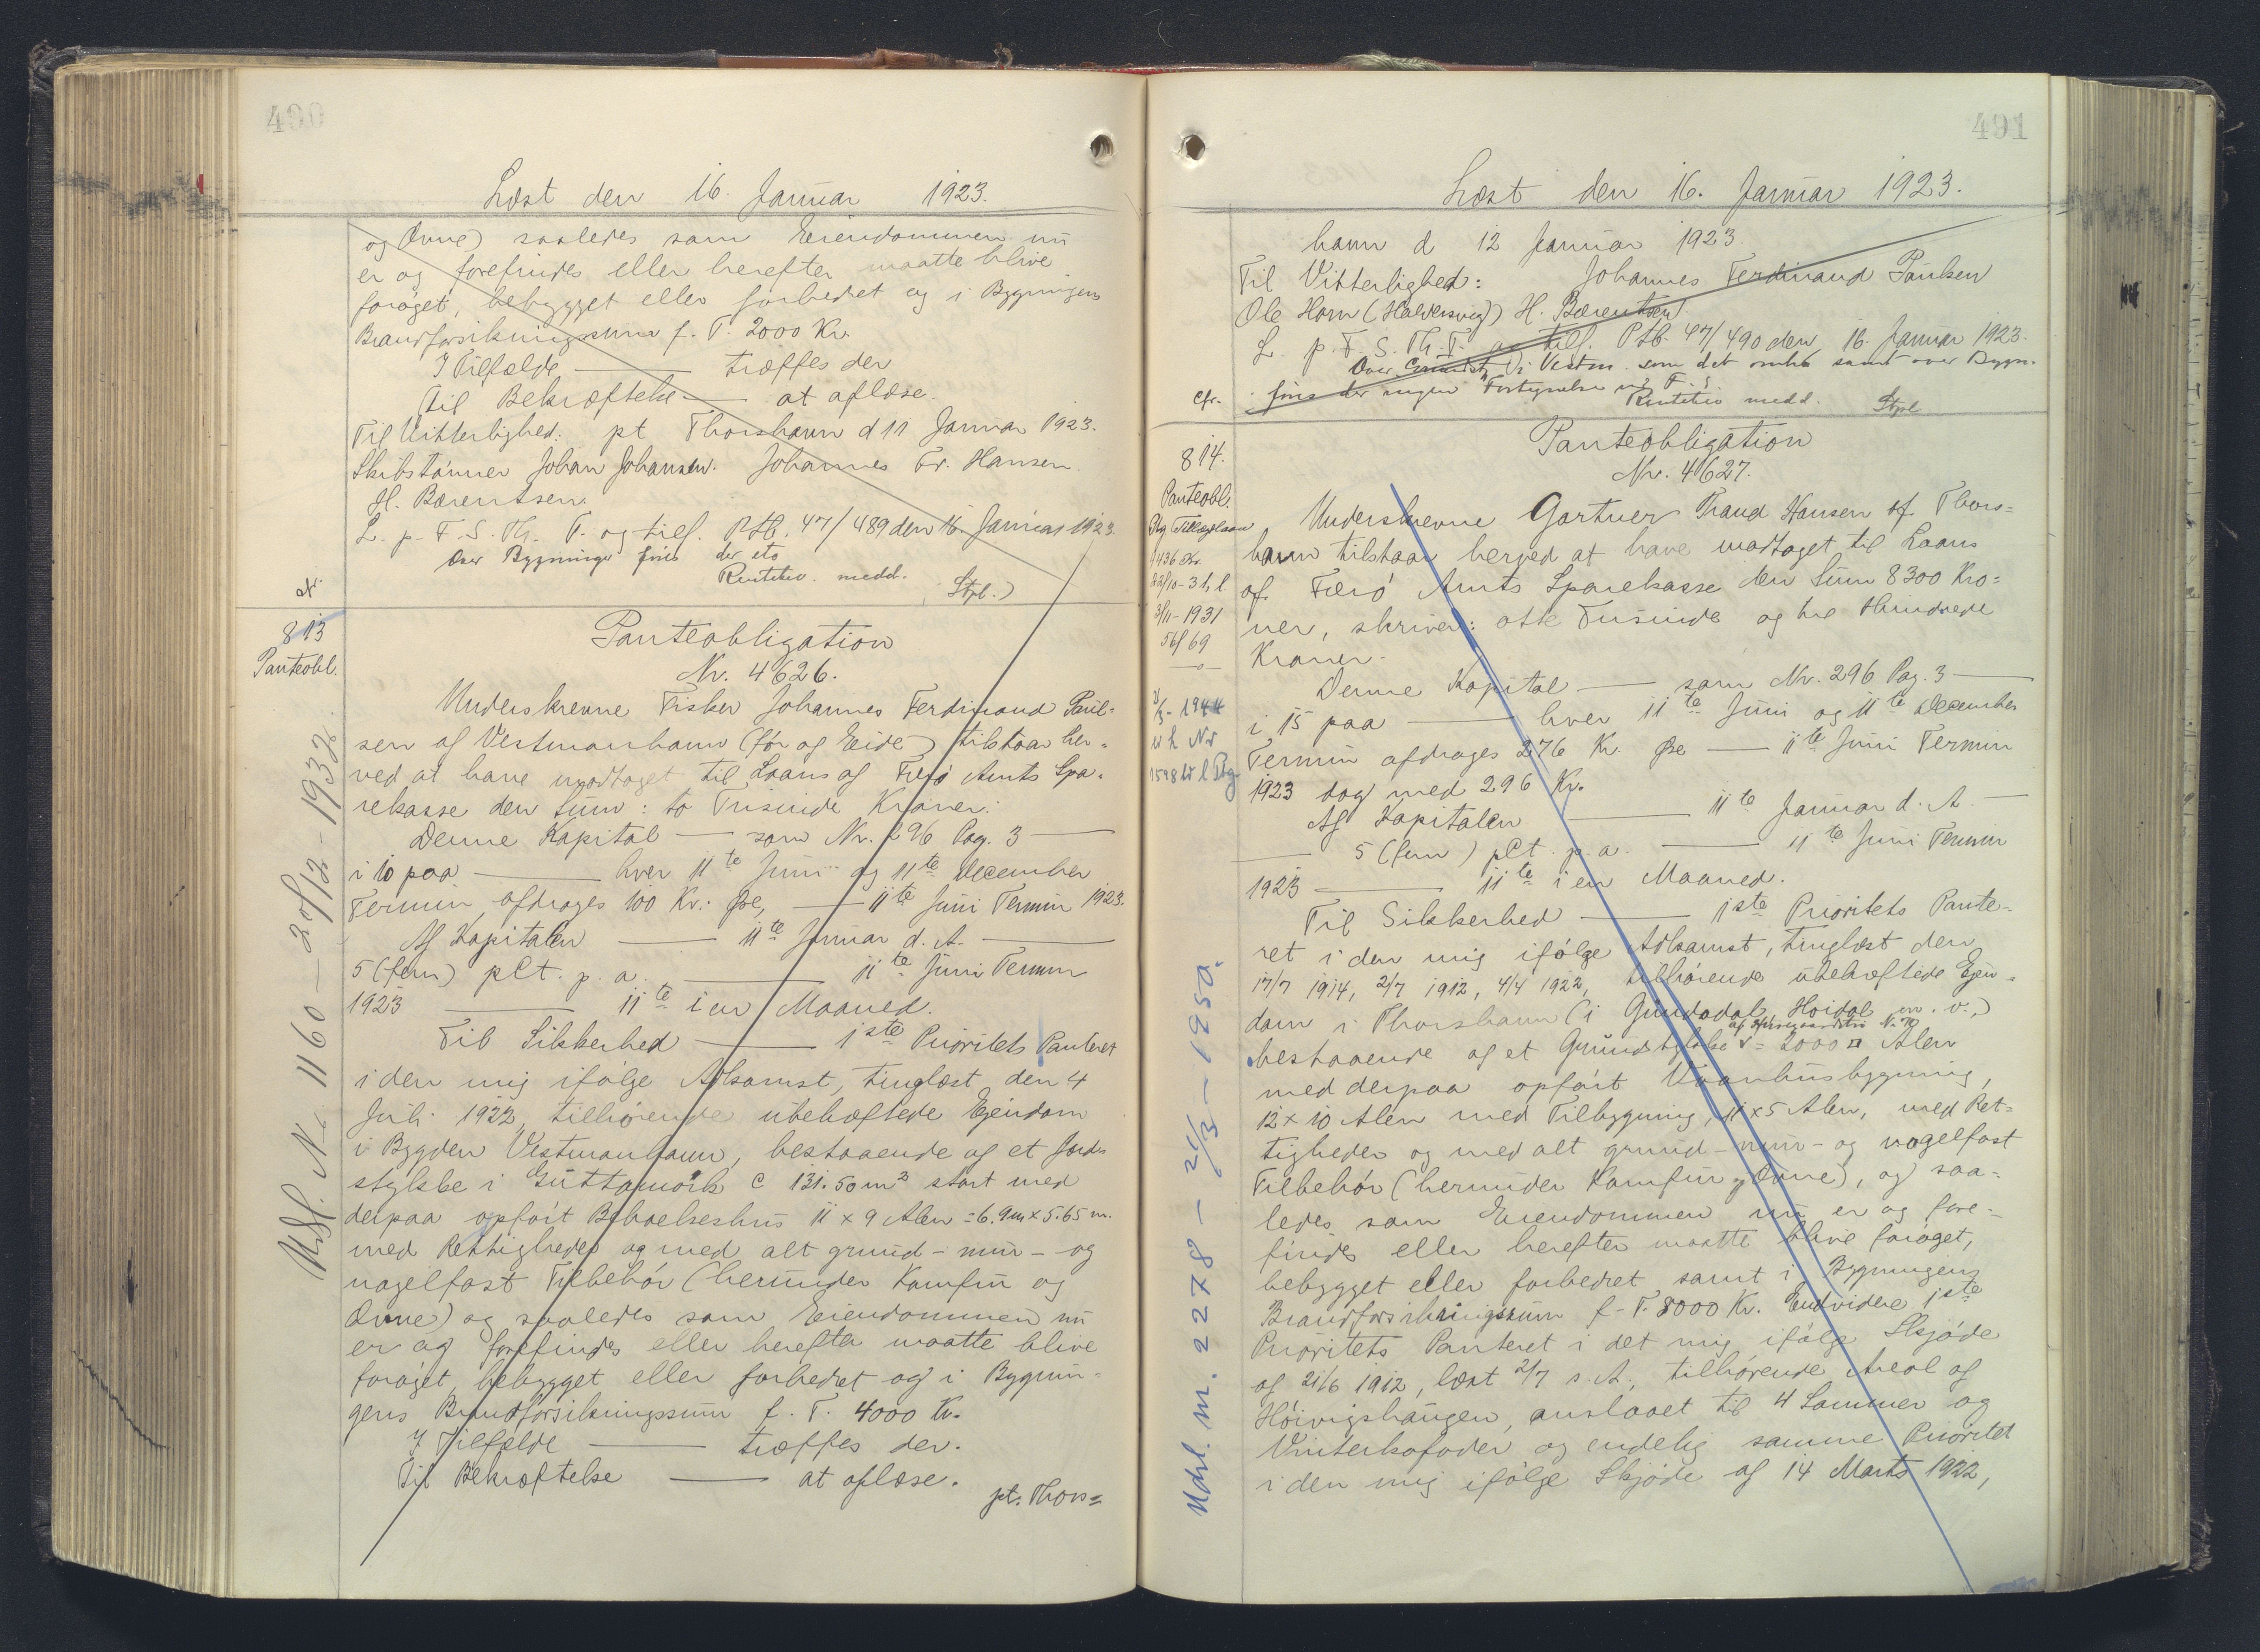 490
Læst den 16. Januar 1923.
og Ovne) saaledes som Eiendommen nu
er og forefindes eller herefter maatte blive
forøget, bebygget eller forbedret og i Bygningens
Brandforsikringssum f. T. 2000 Kr.
I Tilfælde — træffes der
Til Bekræftelse — at aflæse.
Til Vitterlighed: pt Thorshavn d 11 Januar 1923.
Skibstømrer Johan Johansen. Johannes Fr. Hansen.
H. Bærentsen.
L. p. F. S. Th. T. og tilf. Ptb. 47/489 den 16. Januar 1923.
Over Bygninger fins der etc
Rentebev. medd. Stpl.)
cfr.
813
Panteobl.
Panteobligation
Nr. 4626.
Underskrevne Fisker Johannes Ferdinand Poul-
sen af Vestmanhavn (før og Eide) tilstaar her-
ved at have modtaget til Laans af Færø Amts Spa-
rekasse den Sum: to Tusinde Kroner.
Denne Kapital — som Nr. 296 Pag. 3 —
i 10 paa — hver 11te Juni og 11te December
Termin afdrages 100 Kr. Øre, — 11te Juni Termin 1923.
Af Kapitalen — 11te Januar d. A. —
5 (fem) pCt. p. a. — 11te Juni Termin
1923 — 11te i en Maaned.
Til Sikkerhed — 1ste Prioritets Panteret
i den mig ifølge Adkomst, tinglæst den 4
Juli 1922, tilhørende ubehæftede Ejendom
i Bygden Vestmanhavn, bestaaende af et Jords
stykke i Guttamørk c 131.50 m² stort med
derpaa opført Beboelseshus 11 x 9 Alen = 6.9m x 5.65 m.
med Rettigheder og med alt grund- mur- og
nagelfast Tilbehør (herunder Komfur og
Ovne) og saaledes som Eiendommen nu
er og forefindes eller herefter maatte blive
forøget, bebygget eller forbedret og i Bygnin-
gens Brandforsikringssum f. T. 4000 Kr.
I Tilfælde — træffes der.
Til Bekræftelse — at aflæse.
pt. Thors=
Udsl. Nr. 1160 – 20/12 – 1932.
491
Læst den 16. Januar 1923.
havn d 12 Januar 1923.
Til Vitterlighed: Johannes Ferdinand Poulsen
Ole Horn (Haldersvig) H. Bærentsen
L. p. F. S. Th. T. og tilf. Ptb. 47/490 den 16. Januar 1923.
Over Grundst. i Vestm. som det omh. samt over Bygn.
fins der ingen Fortegnelse ved F. S.
Rentebev medd. Stpl
cfr.
814.
Panteobl.
Panteobligation
Nr. 4627.
Underskrevne Gartner Traud Hansen af Thors=
havn tilstaar herved at have modtaget til Laans
af Færø Amts Sparekasse den Sum 8300 Kro=
ner, skriver: otte Tusinde og tre Hundrede
Kroner.
Denne Kapital — som Nr. 296 Pag. 3 —
i 15 paa — hver 11te Juni og 11te December
Termin afdrages 276 Kr. Øre — 11te Juni Termin
1923 dog med 296 Kr.
Af Kapitalen — 11te Januar d. A. —
— 5 (fem) pCt. p. a. — 11te Juni Termin
1923 — 11te i en Maaned.
Til Sikkerhed — 1ste Prioritets Pante-
ret i den mig ifølge Adkomst, tinglæst den
17/7 1914, 2/7 1912, 4/4 1922, tilhørende ubehæftede Ejen-
dom i Thorshavn (i Gundadal, Hoidal m. v.,)
bestaaende af et Grundstykke = 2000 □ Alen
med derpaa opført Vaanhusbygning,
12 x 10 Alen med Tilbygning, 11 x 5 Alen, med Ret=
tigheder og med alt grund- mur- og nagelfast
Tilbehør (herunder Komfur og Ovne), og saa=
ledes som Eiendommen nu er og fore-
findes eller herefter maatte blive forøget,
bebygget eller forbedret samt i Bygningens
Brandforsikringssum f. T. 8000 Kr. Endvidere 1ste
Prioritets Panteret i det mig ifølge Skjøde
af 21/6 1912, læst 2/7 s. A., tilhørende Areal af
Hóivigshaugen, anslaaet til 4 Sommer og
Vinterkofoder og endelig samme Prioritet
i den mig ifølge Skjøde af 14 Marts 1922,
3/11-1931
56/69
Udsl. nr. 2278 – 24/3 – 1950.